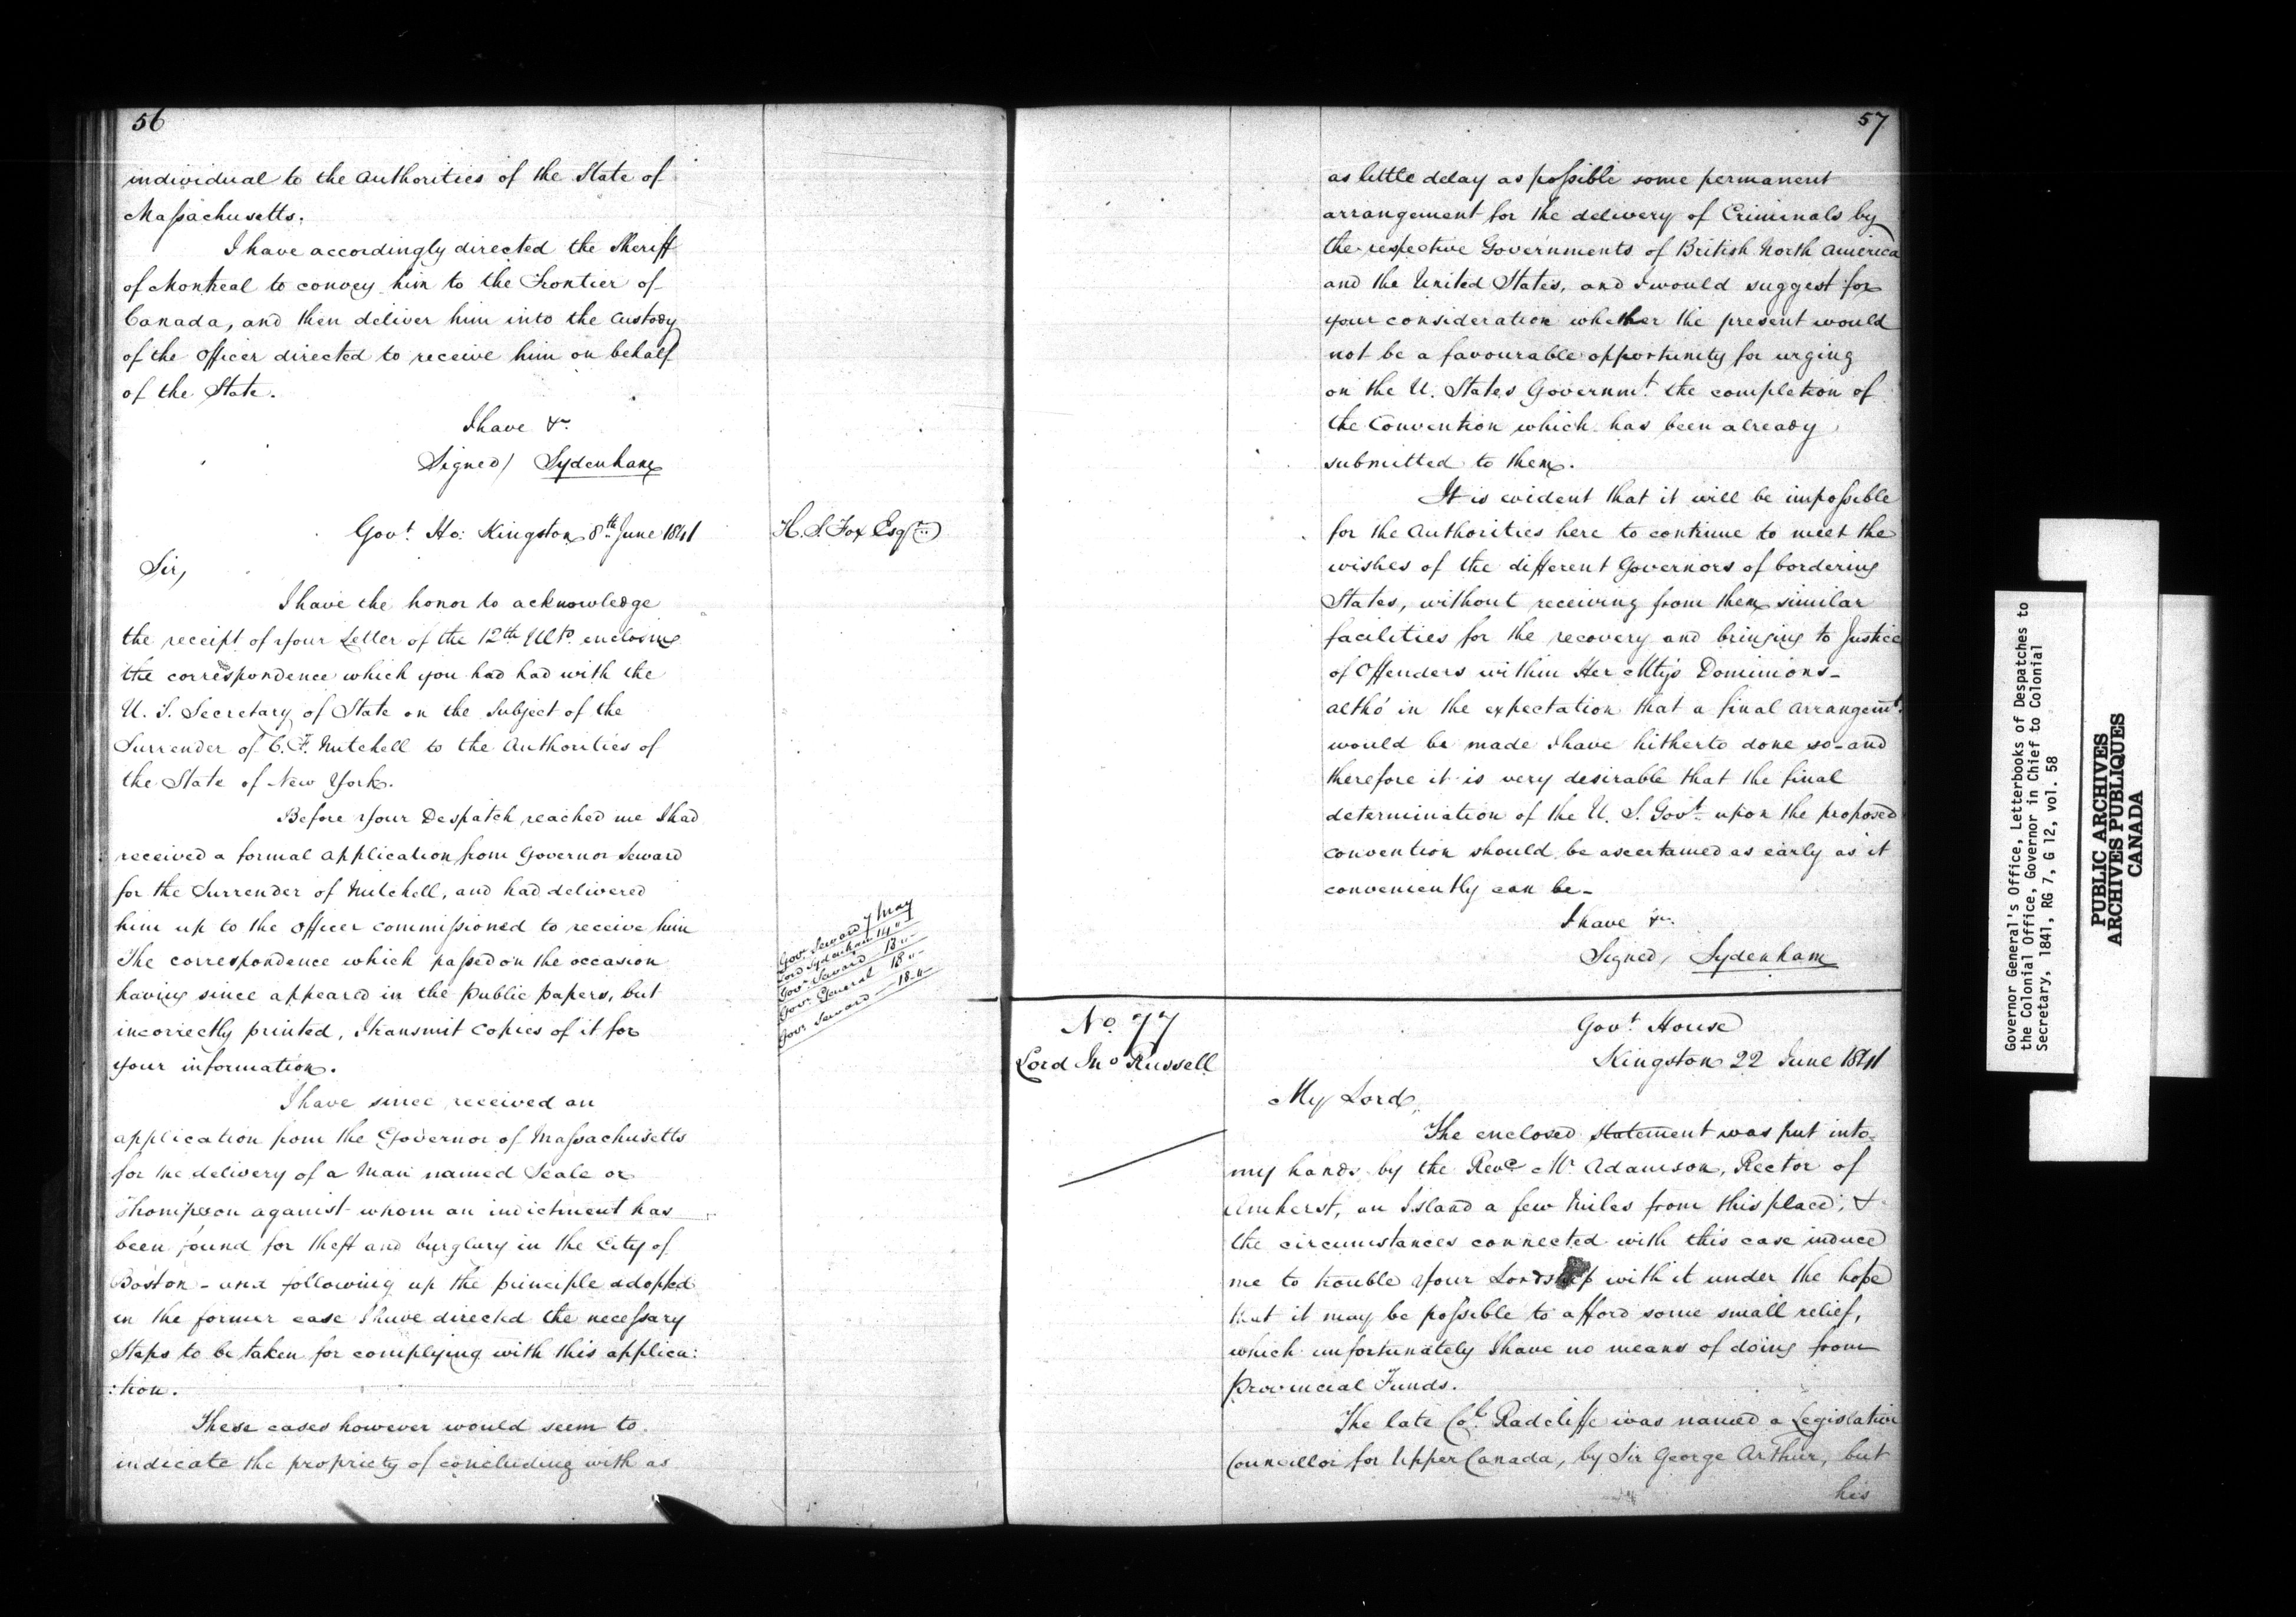 56
individual to the Authorities of the State of
Massachusetts.
I have accordingly directed the Sheriff
of Montreal to convey him to the Frontier of
Canada, and then deliver him into the Custody
of the Officer directed to receive him on behalf
of the State.
I have &c
Signed/ Sydenham
Govt. Ho: Kingston 8th June 1841
H. S. Fox Esqr
Sir,
I have the honor to acknowledge
the receipt of your Letter of the 12th Ulto. enclosing
the correspondence which you had had with the
U. S. Secretary of State on the Subject of the
Surrender of C. F. Mitchell to the Authorities of
the State of New York.
Before your Despatch reached me I had
received a formal application from Governor Seward
for the Surrender of Mitchell, and had delivered
him up to the Officer commissioned to receive him
The correspondence which passed on the occasion
having since appeared in the public papers, but
incorrectly printed, I transmit Copies of it for
your information.
Govr. Seward 7 May
Lord Sydenham 14 "
Govr. Seward 18 "
Govr. General 18 "
Govr Seward 18 "
I have since received an
application from the Governor of Massachusetts
for the delivery of a Man named Seale or
Thompson against whom an indictment has
been found for theft and burglary in the City of
Boston - and following up the principle adopted
in the former case I have directed the necessary
Steps to be taken for complying with this applica:
:tion.
These cases however would seem to
indicate the propriety of concluding with as
57
as little delay as possible some permanent
arrangement for the delivery of Criminals by
the respective Governments of British North America
and the United States, and I would suggest for
your consideration whether the present would
not be a favourable opportunity for urging
on the U. States Governmt. the completion of
the Convention which has been already
submitted to them.
It is evident that it will be impossible
for the Authorities here to continue to meet the
wishes of the different Governors of bordering
States, without receiving from them similar
facilities for the recovery and bringing to Justice
of Offenders within Her Mty's Dominions -
altho' in the expectation that a final arrangemt.
would be made I have hitherto done so - and
therefore it is very desirable that the final
determination of the U. S. Govt. upon the proposed
convention should be ascertained as early as it
conveniently can be -
I have &c.
Signed, Sydenham
No. 77
Lord Jno Russell
Govt House
Kingston 22 June 1841
My Lord,
The enclosed statement was put into
my hands by the Revd. Mr Adamson, Rector of
Amherst, an Island a few Miles from this place, &
the circumstances connected with this case induce
me to trouble Your Lordship with it under the hope
that it may be possible to afford some small relief,
which unfortunately I have no means of doing from
Provincial Funds.
The late Col. Radcliffe was named a Legislative
Councillor for Upper Canada, by Sir George Arthur, but
his
Governor General's Office, Letterbooks of Despatches to
the Colonial Office, Governor in Chief to Colonial
Secretary, 1841, RG 7, G 12, vol. 58
PUBLIC ARCHIVES
ARCHIVES PUBLIQUES
CANADA